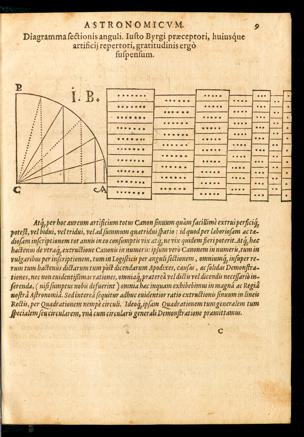 ASTRONOMICVM. 9
Diagramma sectionis anguli. Iusto Byrgi præceptori, huiusque
artificij repertori, gratitudinis ergò
suspensum.
B
I. B.
C
C A
Atq́; per hoc aureum artificium totus Canon sinuum quàm facillimè extrui perficiq́;
potest, vel biduò, vel triduò, vel ad summum quatridui spatio: id quod per laboriosam ac te-
diosam inscriptionem tot annis in eo consumptis vix atq́; ne vix quidem fieri poterit. Atq́; hæc
hactenus de vtraq́; extructione Canonis in numeris: ipsum verò Canonem in numeris, tum in
vulgaribus per inscriptionem, tum in Logisticis per anguli sectionem, omniumq́; insuper re-
rum tum hactenus dictarum tum pòst dicendarum Apodixes, causas, ac solidas Demonstra-
tiones, nec non euidentissimas rationes, omniaq́; præterea vel dictis vel dicendis necessariò in-
ferenda, (nisi sumptus nobis defuerint) omnia hæc inquam exhibebimus in magna ac Regia
nostra Astronomia. Sed interea sequitur adhuc euidentior ratio extructionis sinuum in lineis
Rectis, per Quadrationem nempe circuli. Ideoq́; ipsam Quadrationem tum generalem tum
specialem seu circularem, vnà cum circularis generali Demonstratione præmittamus.
C